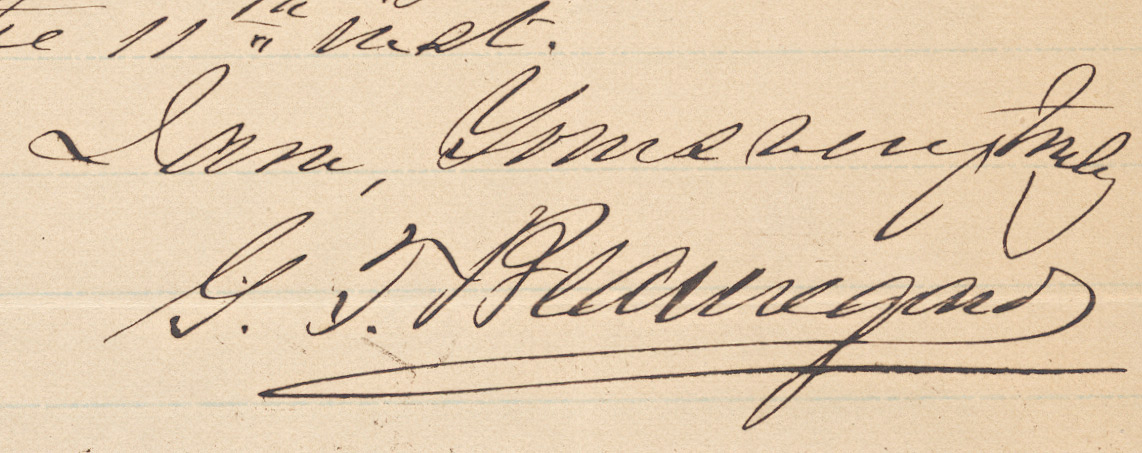 11th inst.
I am, Yours very truly
G. T. Beauregard